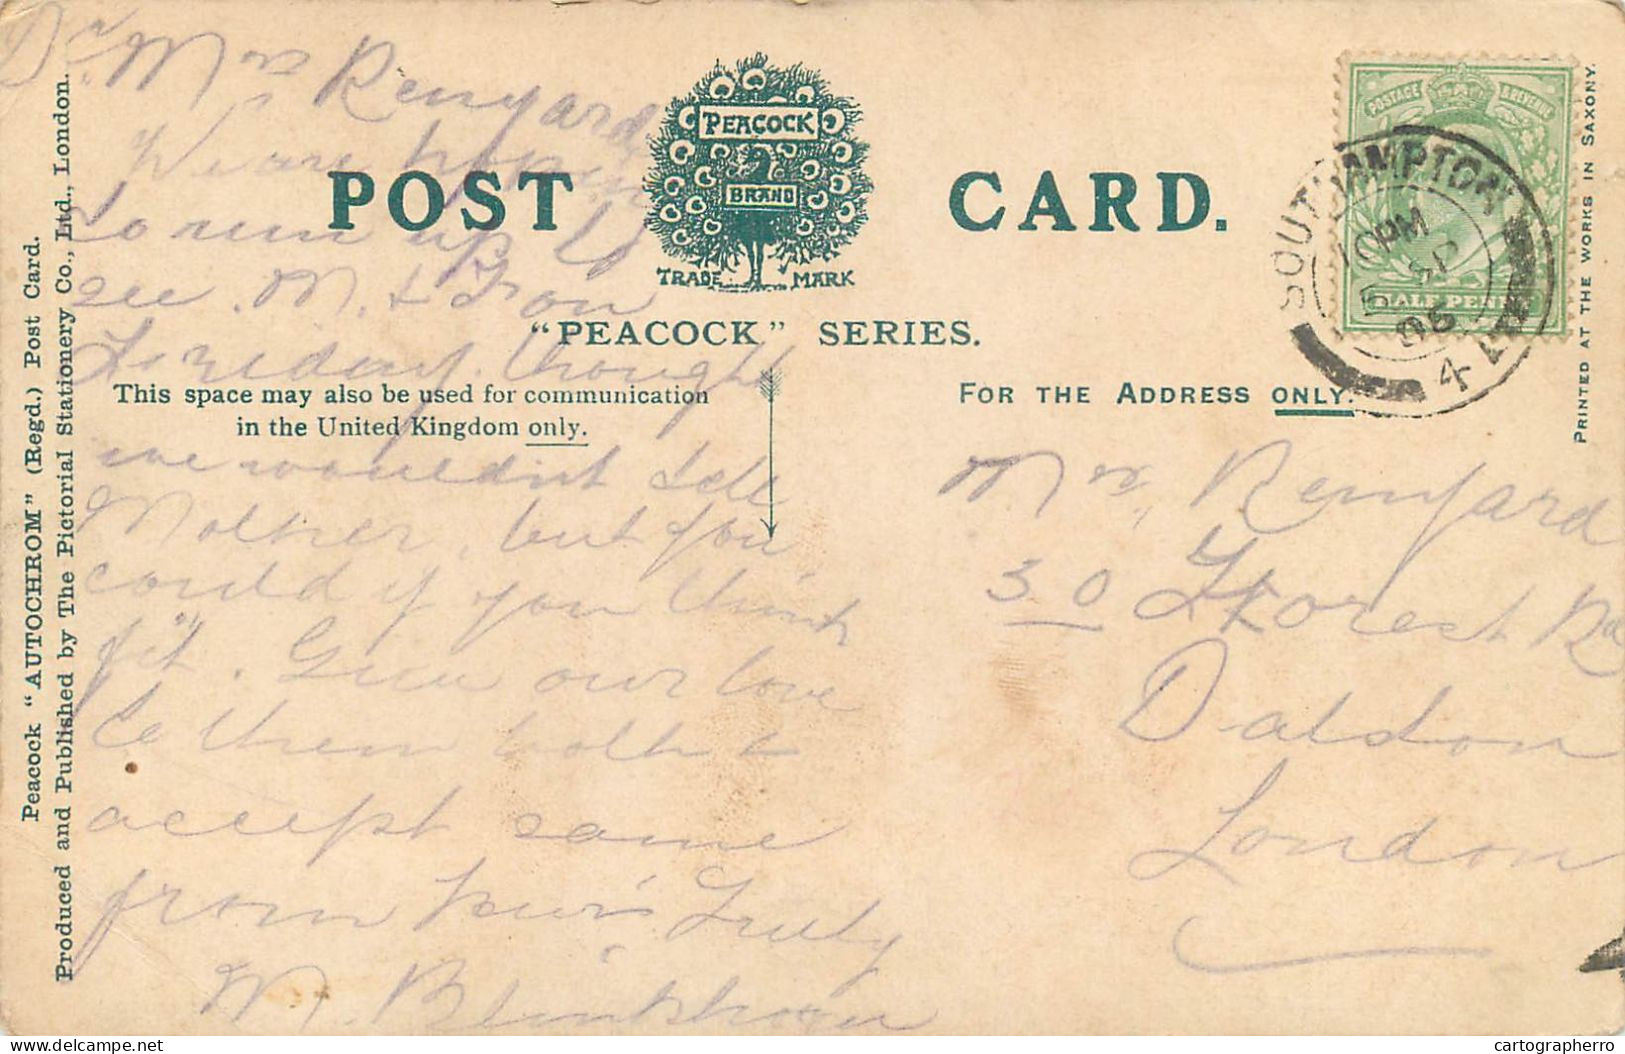 Dr Mrs Renyard
We are hopin
to run up to
see M. & F on
thought
we wouldnt tell
Mother, but you
could if you think
fit. Give our love
to them both &
accept same
from yours Truly
W. Blinkhorn
PEACOCK
BRAND
TRADE MARK
POST CARD.
"PEACOCK" SERIES.
This space may also be used for communication
in the United Kingdom only.
FOR THE ADDRESS ONLY.
Mrs Renyard
30 Forest Rd
Dalston
London
POSTAGE & REVENUE
HALF PENNY
SOUTHAMPTON
10 PM
5 SP
06
4
PRINTED AT THE WORKS IN SAXONY.
Peacock "AUTOCHROM" (Regd.) Post Card.
Produced and Published by The Pictorial Stationery Co., Ltd., London.
delcampe.net
cartographerro